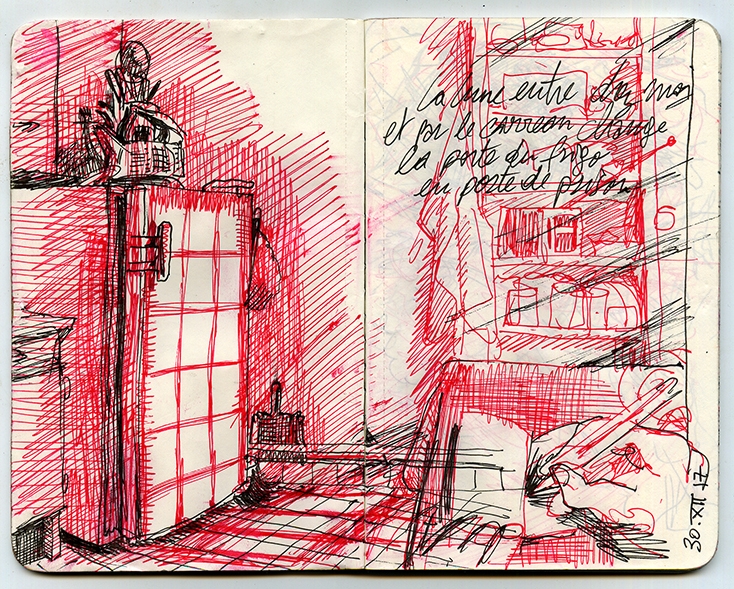 La lune entre chez moi
et par le carreau change
la porte du frigo
en porte de prison
30.XII.17